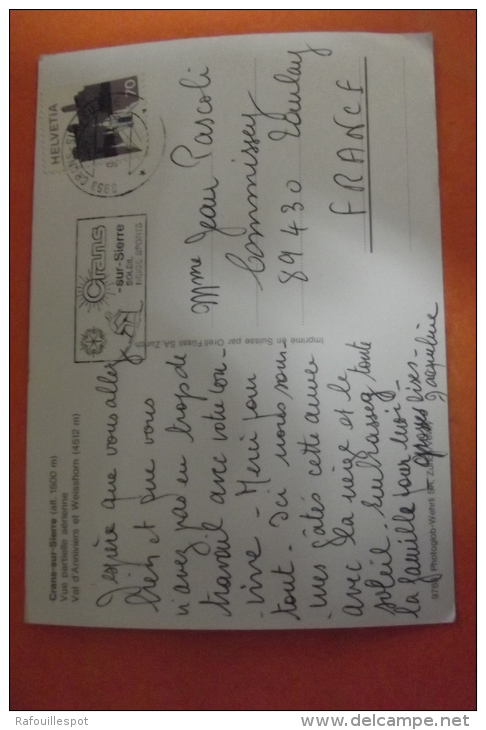 Crans-sur-Sierre (alt. 1500 m)
Vue partielle aérienne
Val d'Anniviers et Weisshorn (4512 m)
J'espère que vous allez
bien et que vous
n'avez pas eu trop de
travail avec votre cou-
-sine - Merci pour
tout. Ici nous som-
mes gâtés cette année
avec la neige et le
soleil. embrassez toute
la famille pour moi -
grosses bises -
Jacqueline
Photoglob-Wehrli
Imprimé en Suisse par Orell Füssli SA, Zurich
HELVETIA
70
3963
Crans
-sur-Sierre
SOLEIL
NEIGE SPORTS
Mme Jean Pascoli
Commissey
89430 Tanlay
FRANCE
Rafouillespot
www.delcampe.net